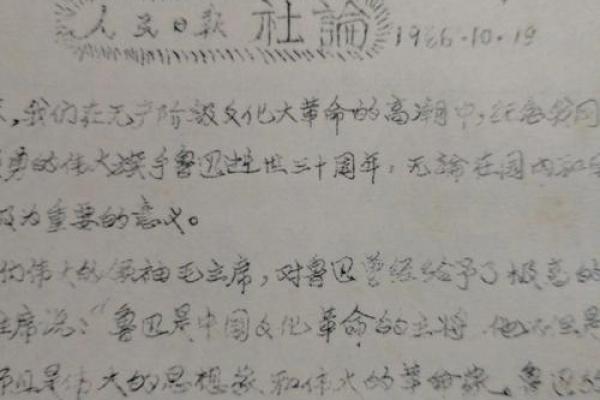 人民日報 社論 1966.10.19
,我们在无产阶級文化大革命的高潮中,纪念我国
勇的伟大旗手魯迅逝世三十周年,无論在国内和
极为重要的意义。
们伟大的领袖毛主席,对魯迅曾经给予了极高的
主席说:“魯迅是中国文化革命的主将 他不但是
而且是伟大的思想家和伟大的革命家。魯迅的